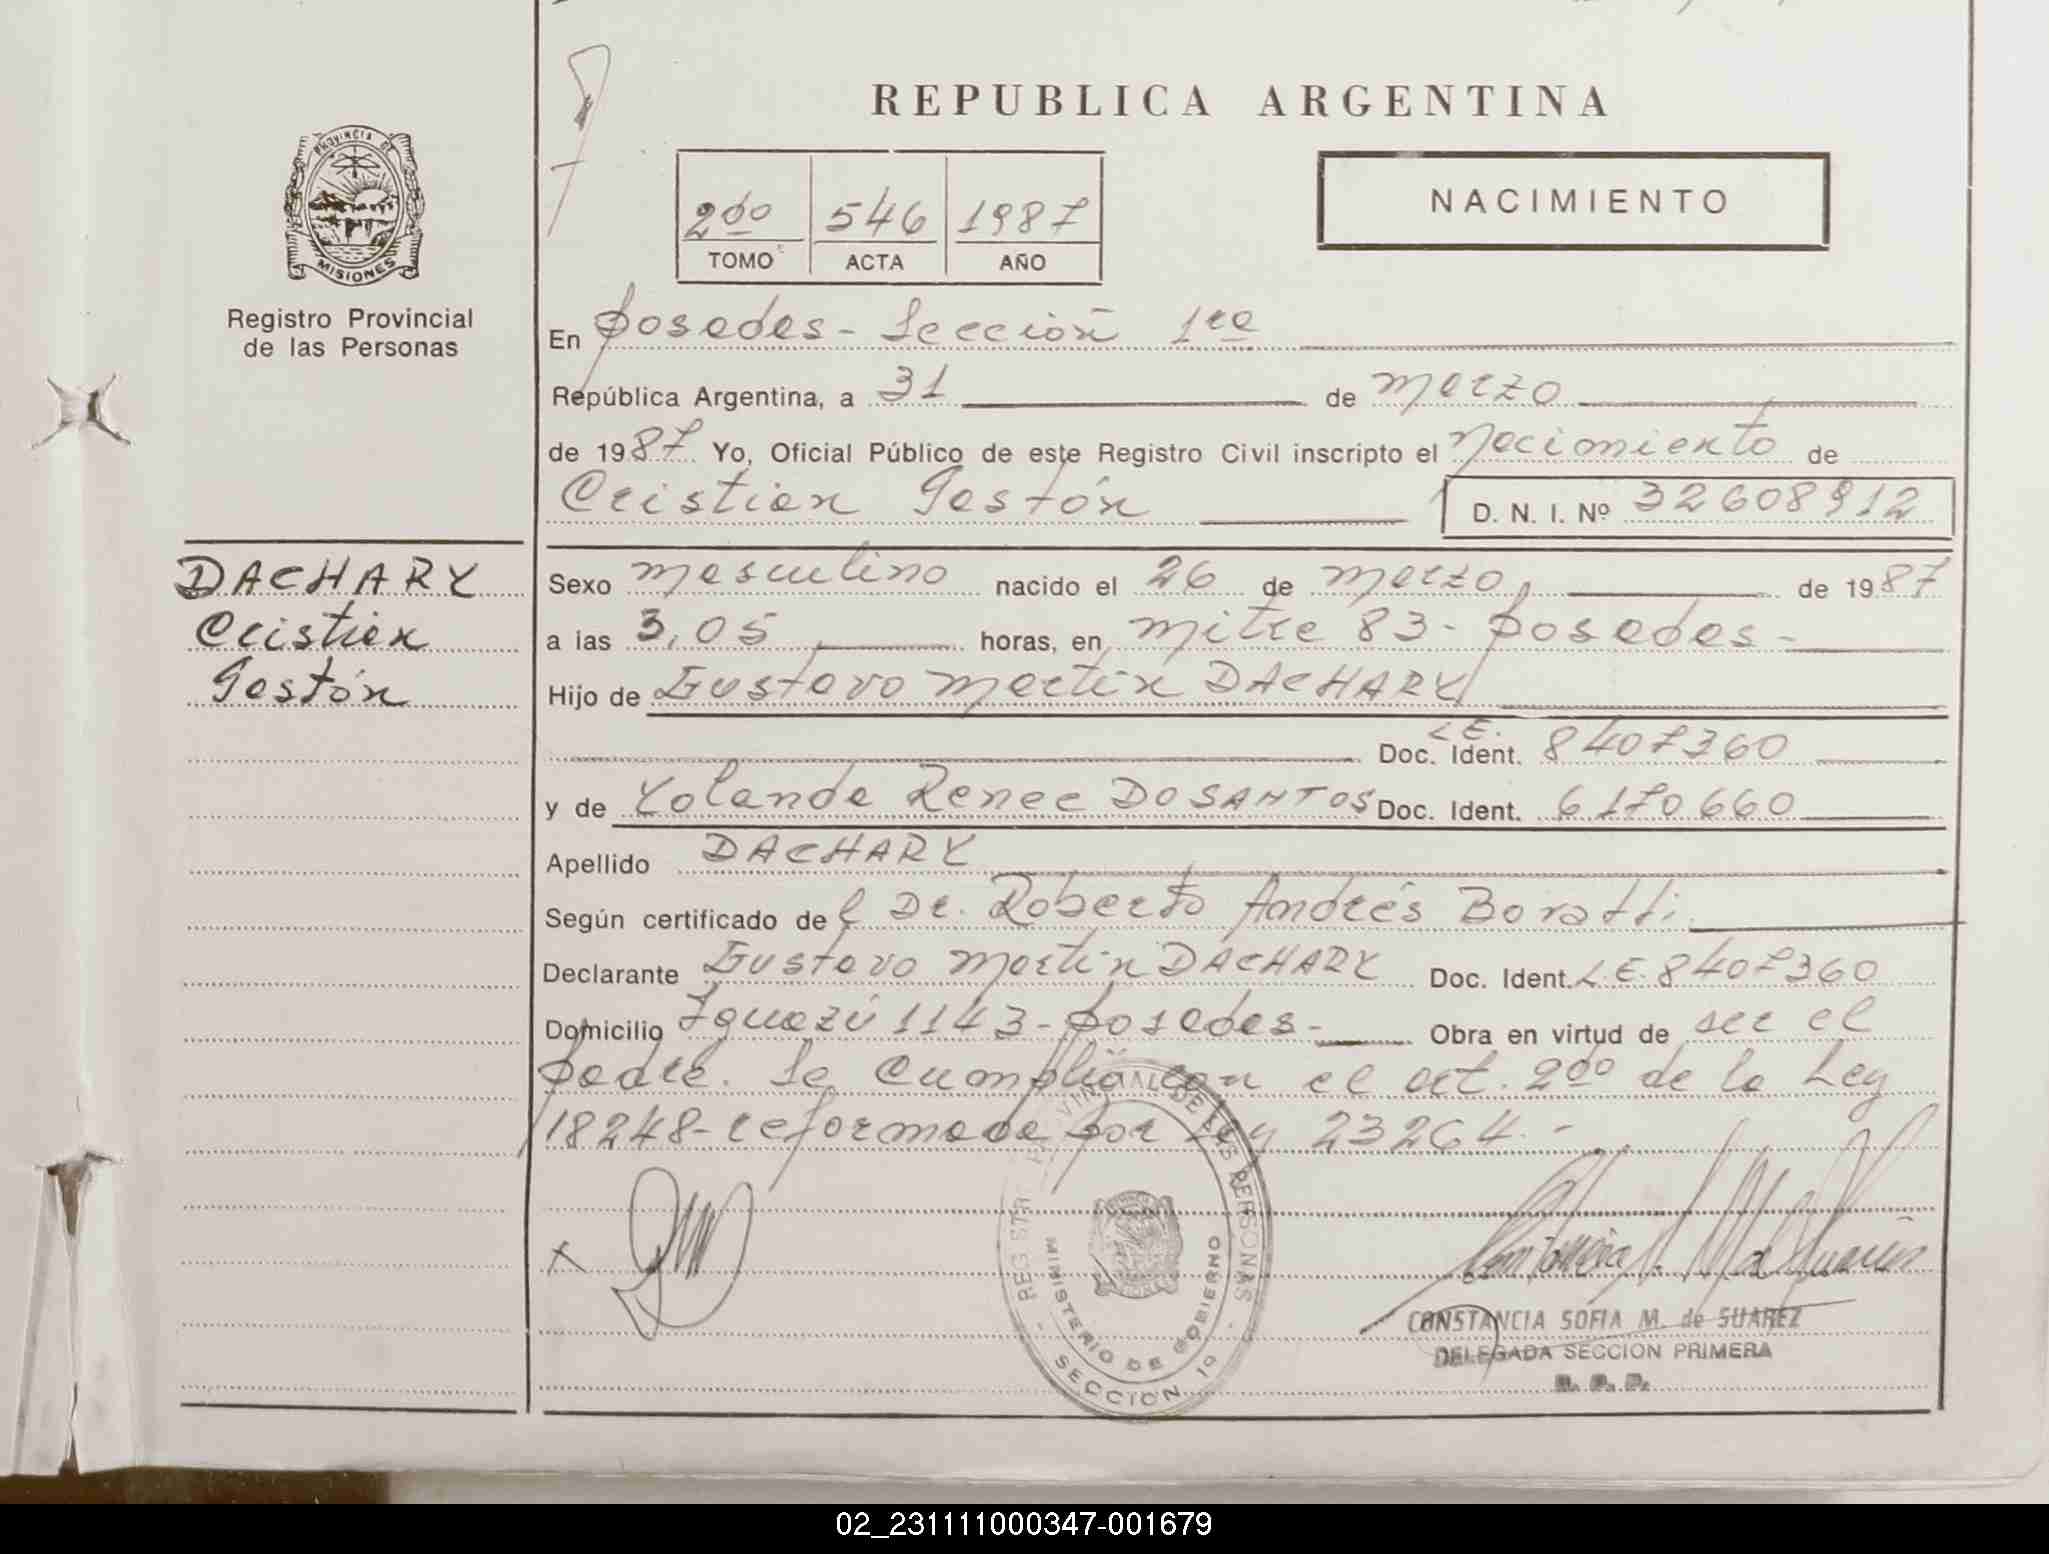 REPUBLICA ARGENTINA
PROVINCIA DE
MISIONES
Registro Provincial
de las Personas
2do 546 1987
TOMO ACTA AÑO
NACIMIENTO
En Posadas - Sección 1ra
República Argentina, a 31 de marzo
de 1987 Yo, Oficial Público de este Registro Civil inscripto el nacimiento de
Cristian Gastón D. N. I. Nº 32608912
DACHARY
Cristian
Gastón
Sexo masculino nacido el 26 de marzo de 1987
a las 3,05 horas, en mitre 83 - Posadas -
Hijo de Gustavo Martín DACHARY
L.E.
Doc. Ident. 8407360
y de Yolanda Renee DOSANTOS Doc. Ident. 6170660
Apellido DACHARY
Según certificado del Dr. Roberto Andrés Boratti
Declarante Gustavo Martín DACHARY Doc. Ident. L.E. 8407360
Domicilio Iguazú 1143 - Posadas - Obra en virtud de ser el
padre. Se cumplió con el art. 2do de la Ley
18248 - reformada por Ley 23264 -
REGISTRO PROVINCIAL DE LAS PERSONAS
MINISTERIO DE GOBIERNO
SECCION 1º
CONSTANCIA SOFIA M. de SUAREZ
DELEGADA SECCION PRIMERA
R. P. P.
02_231111000347-001679